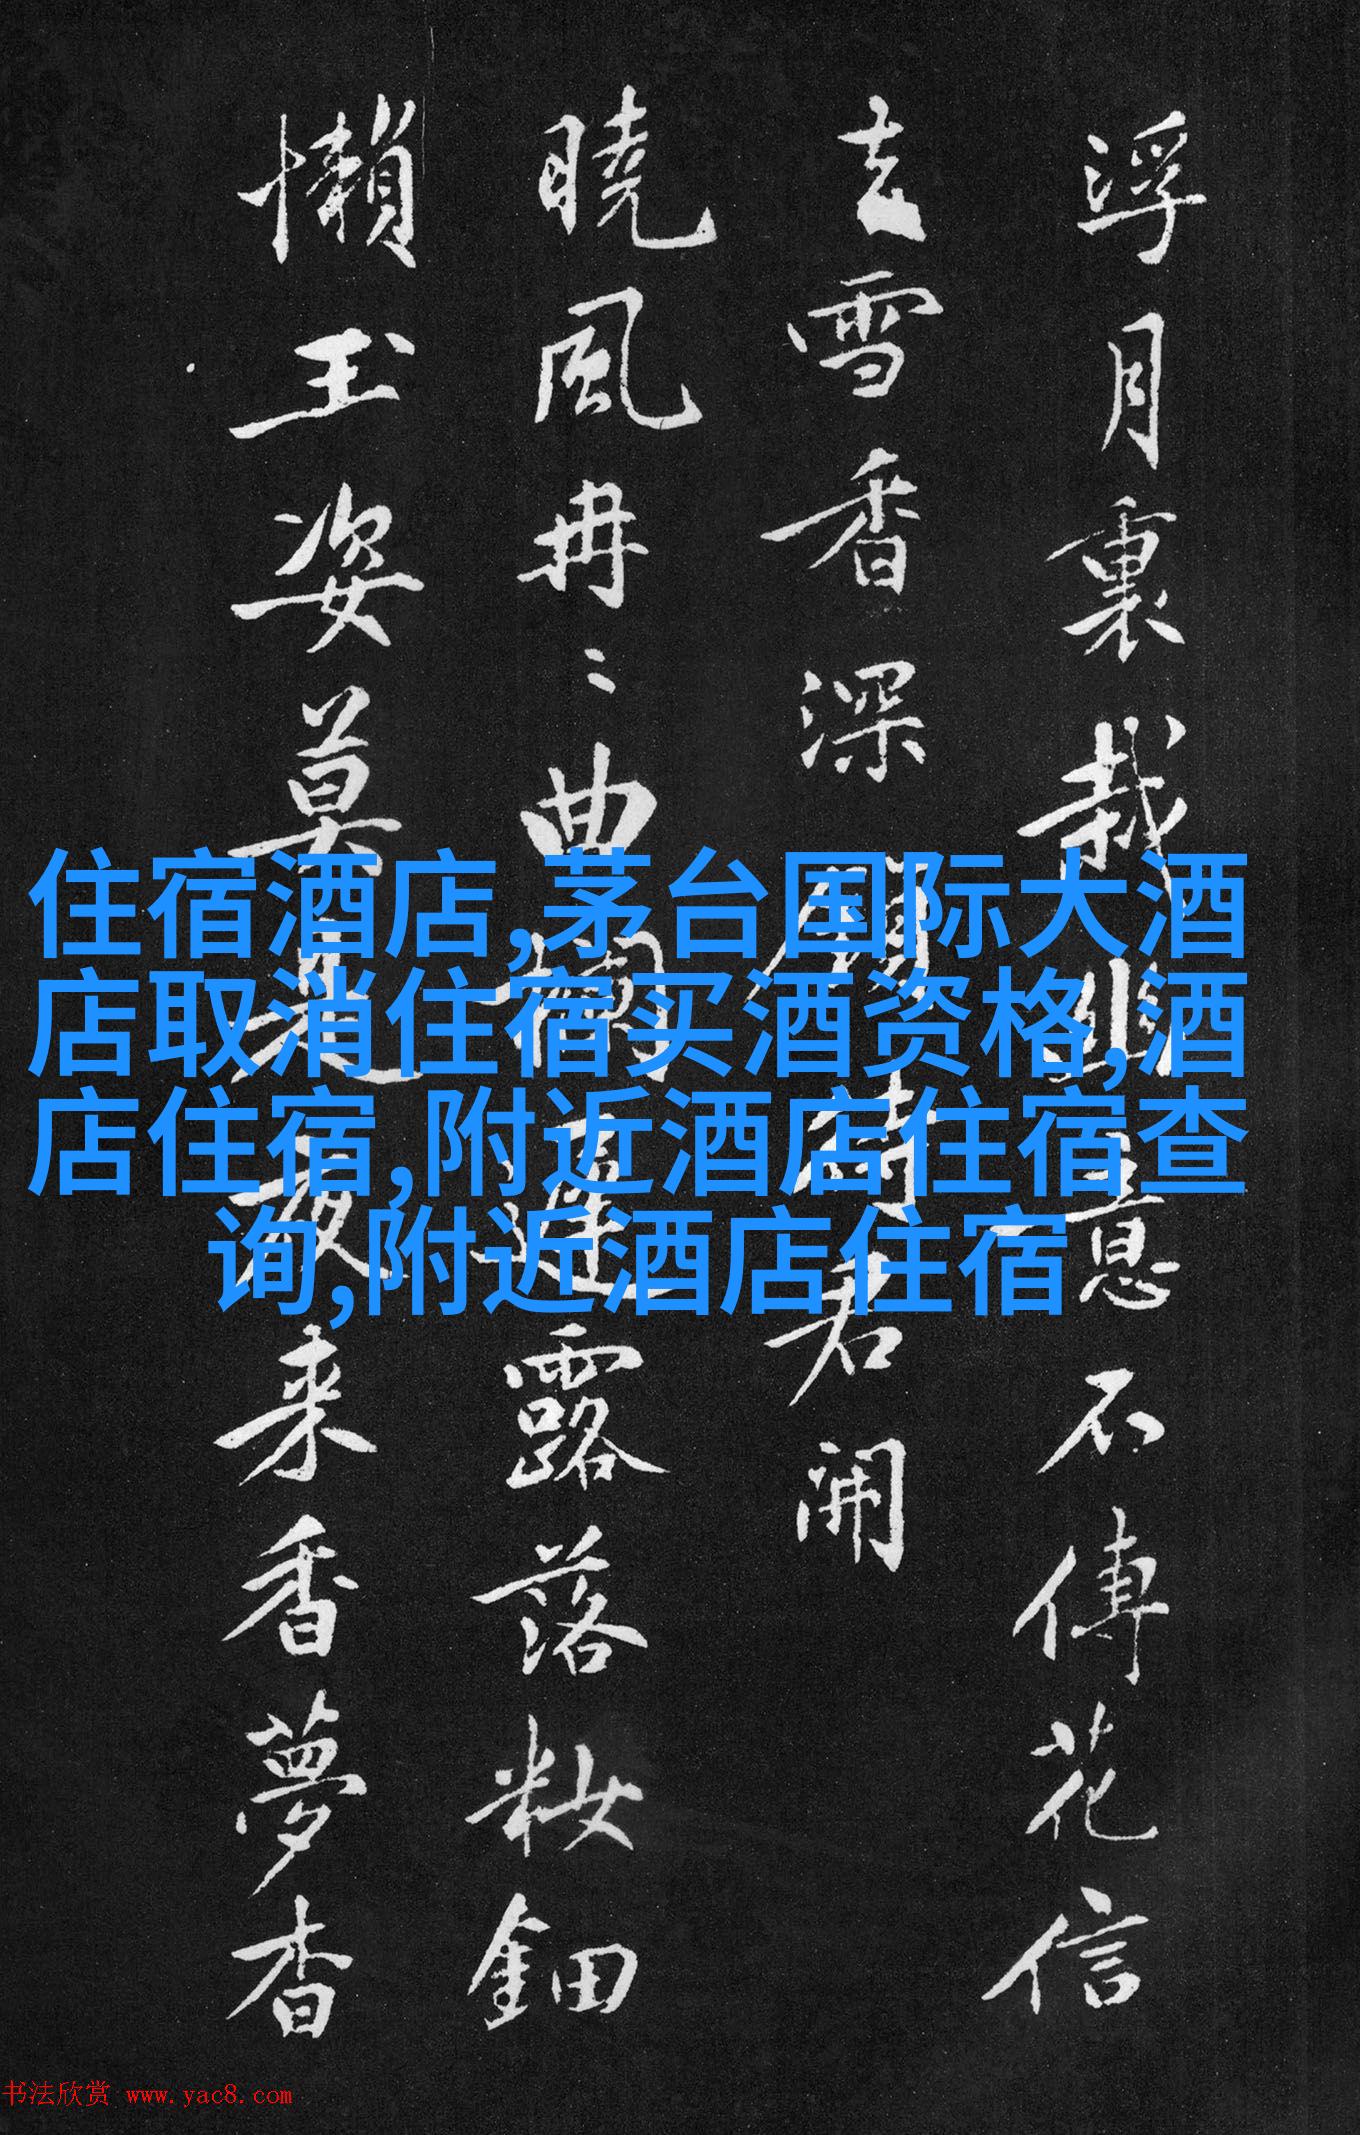 浮月裏栽幽意不傳花信
去雪香深 詩君開
曉風冉〻曲欄遲露落粧鈿
懶玉姿莫是夜来香夢杳
住宿酒店,茅台国际大酒
店取消住宿买酒资格,酒
店住宿,附近酒店住宿查
询,附近酒店住宿
书法欣赏 www.yac8.com